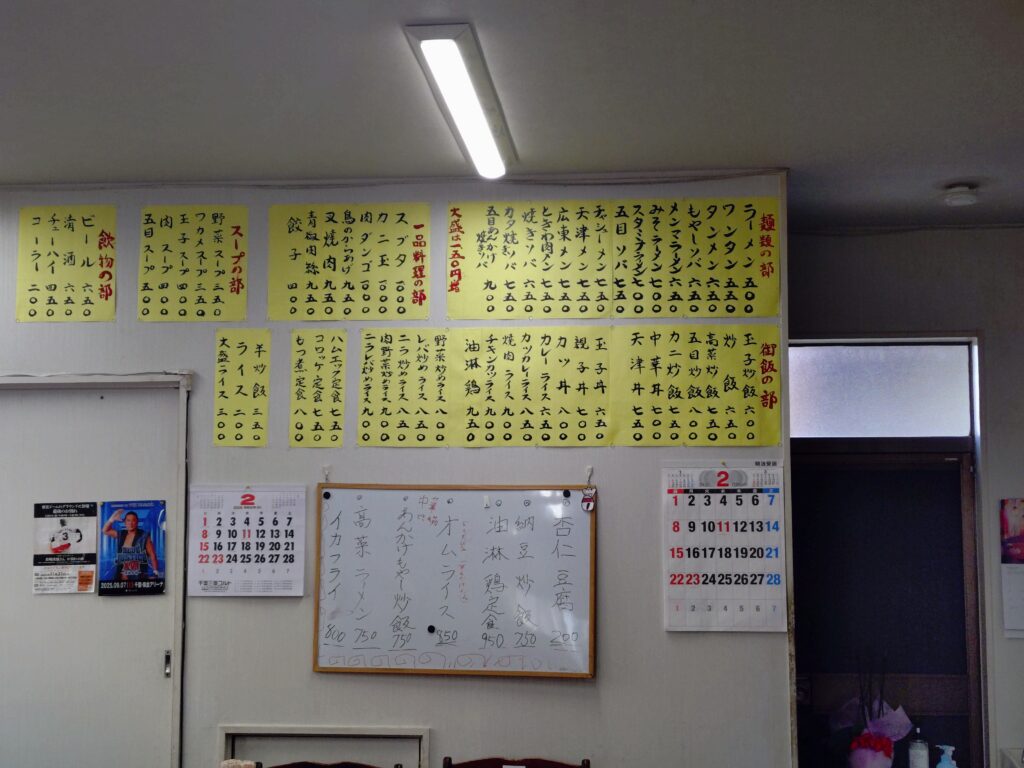 麺類の部
ラーメン 五五〇
ワンタン 五五〇
タンメン 六五〇
もやしソバ 六五〇
メンマラーメン 六五〇
みそラーメン 六五〇
スタミナラーメン 七五〇
五目ソバ 七五〇
チャシューメン 七五〇
天津メン 七五〇
広東メン 七五〇
ときわ肉メン
焼きソバ 六五〇
カタ焼きソバ 七五〇
五目あんかけ焼きソバ 九〇〇
大盛は一五〇円増
一品料理の部
スブタ
カニ玉
肉ダンゴ
鳥のからあげ 九五〇
叉焼肉 九五〇
青椒肉絲 九五〇
餃子 四〇〇
スープの部
野菜スープ 三五〇
ワカメスープ 三五〇
玉子スープ 四〇〇
肉スープ 四五〇
五目スープ 五五〇
飲物の部
ビール 六五〇
清酒 六五〇
チューハイ 四五〇
コーラー 二〇〇
御飯の部
玉子炒飯 六〇〇
炒飯 六五〇
高菜炒飯 七五〇
五目炒飯 七五〇
カニ炒飯 八五〇
中華丼 七五〇
天津丼 七五〇
玉子丼 六五〇
親子丼 七五〇
カツ丼 八〇〇
カレーライス 六五〇
カツカレーライス 八五〇
焼肉ライス 九五〇
チキンカツライス 九〇〇
油淋鶏 九五〇
野菜炒めライス 八五〇
レバ炒めライス 八五〇
ニラ炒めライス 八五〇
肉野菜炒めライス 九〇〇
ニラレバ炒めライス 九〇〇
ハムエッグ定食 七五〇
コロッケ定食 七五〇
もつ煮定食 八〇〇
半炒飯 三五〇
ライス 二〇〇
大盛ライス 三五〇
杏仁豆腐 200
納豆炒飯 750
油淋鶏定食 950
オムライス 850
あんかけもやし炒飯 750
高菜ラーメン 750
イカフライ 800
2
1 2 3 4 5 6 7
8 9 10 11 12 13 14
15 16 17 18 19 20 21
22 23 24 25 26 27 28
2
日 月 火 水 木 金 土
1 2 3 4 5 6 7
8 9 10 11 12 13 14
15 16 17 18 19 20 21
22 23 24 25 26 27 28
2025.09.07